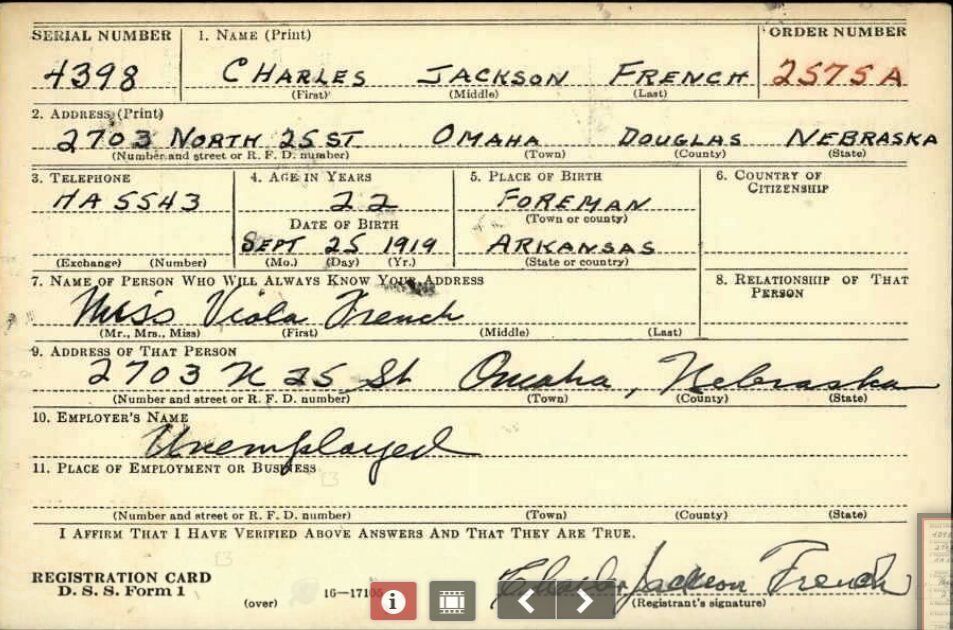 SERIAL NUMBER 1. NAME (Print) ORDER NUMBER
4398 CHARLES JACKSON FRENCH 2575A
(First) (Middle) (Last)
2. ADDRESS (Print)
2703 NORTH 25 ST OMAHA DOUGLAS NEBRASKA
(Number and street or R. F. D. number) (Town) (County) (State)
3. TELEPHONE 4. AGE IN YEARS 5. PLACE OF BIRTH 6. COUNTRY OF
CITIZENSHIP
HA 5543 22 FOREMAN
DATE OF BIRTH (Town or county)
SEPT 25 1919 ARKANSAS
(Exchange) (Number) (Mo.) (Day) (Yr.) (State or country)
7. NAME OF PERSON WHO WILL ALWAYS KNOW YOUR ADDRESS 8. RELATIONSHIP OF THAT
PERSON
Miss Viola French
(Mr., Mrs., Miss) (First) (Middle) (Last)
9. ADDRESS OF THAT PERSON
2703 N 25 St Omaha, Nebraska
(Number and street or R. F. D. number) (Town) (County) (State)
10. EMPLOYER'S NAME
Unemployed
11. PLACE OF EMPLOYMENT OR BUSINESS
(Number and street or R. F. D. number) (Town) (County) (State)
I AFFIRM THAT I HAVE VERIFIED ABOVE ANSWERS AND THAT THEY ARE TRUE.
REGISTRATION CARD
D. S. S. Form 1 (over) Charles Jackson French
(Registrant's signature)